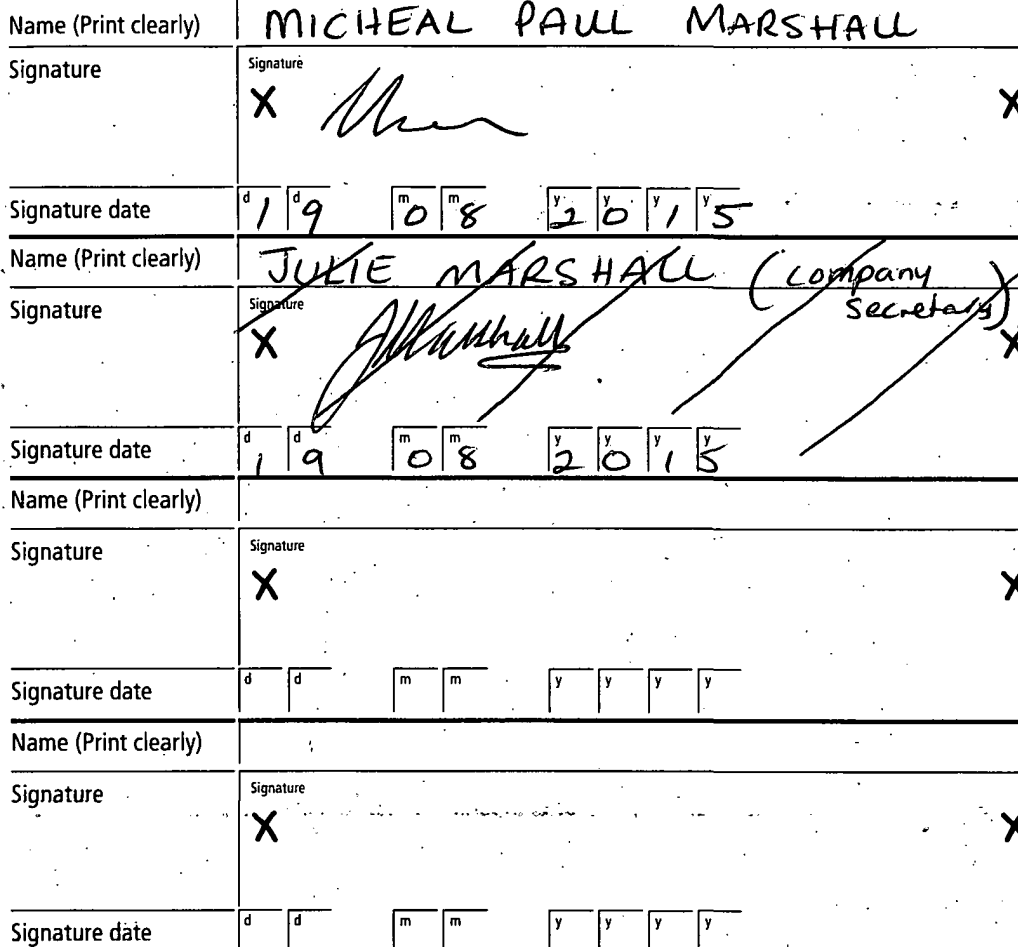 Name (Print clearly) MICHEAL PAUL MARSHALL
Signature Signature
X X
Signature date d 1 d 9 m 0 m 8 y 2 y 0 y 1 y 5
Name (Print clearly) JULIE MARSHALL (company
Secretary)
Signature Signature
X JMarshall X
Signature date d 1 d 9 m 0 m 8 y 2 y 0 y 1 y 5
Name (Print clearly)
Signature Signature
X X
Signature date d d m m y y y y
Name (Print clearly)
Signature Signature
X X
Signature date d d m m y y y y